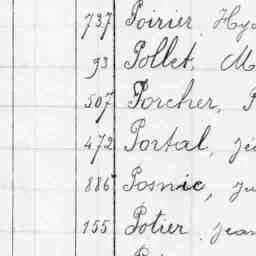 737 Poirier, Hya
93 Pollet, M
507 Porcher, P
472 Portal, Jé
886 Posnic, Ju
155 Potier, Jean